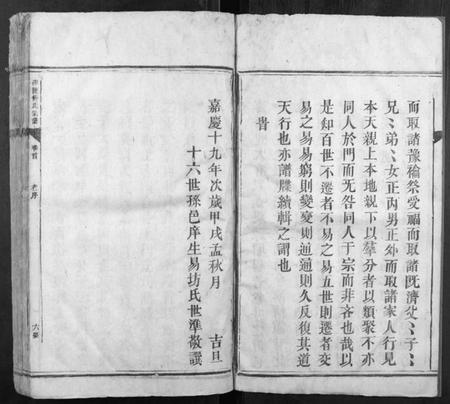 而取諸豫禴祭受福而取諸既濟父〻子〻
兄〻弟〻女正内男正外而取諸家人行見
本天親上本地親下以羣分者以類聚不亦
同人於門而无咎同人于宗而非吝也哉以
是知百世不遷者不易之易五世則遷者變
易之易易窮則變變則通通則久反復其道
天行也亦譜牒續輯之謂也
旹
嘉慶十九年次歲甲戌孟秋月　吉旦
十六世孫邑庠生易坊氏世準敬譔
卷首
老序